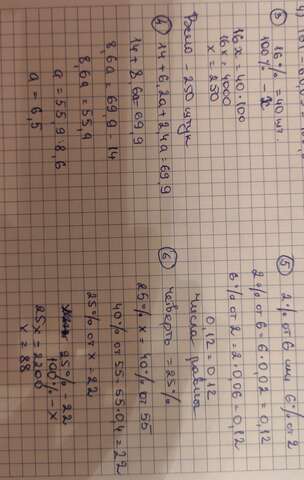 ③ 16% = 40 шт.
100% - x
16x = 40·100
16x = 4000
x = 250
Всего - 250 штук
④ 14 + 6,2a + 2,4a = 69,9
14 + 8,6a = 69,9
8,6a = 69,9 - 14
8,6a = 55,9
a = 55,9 : 8,6
a = 6,5
⑤ 2% от 6 или 6% от 2
2% от 6 = 6·0,02 = 0,12
6% от 2 = 2·0,06 = 0,12
0,12 = 0,12
числа равны
⑥ четверть = 25%
25% x = 40% от 55
40% от 55 = 55·0,4 = 22
25% от x = 22
25% - 22
100% - x
25x = 2200
x = 88